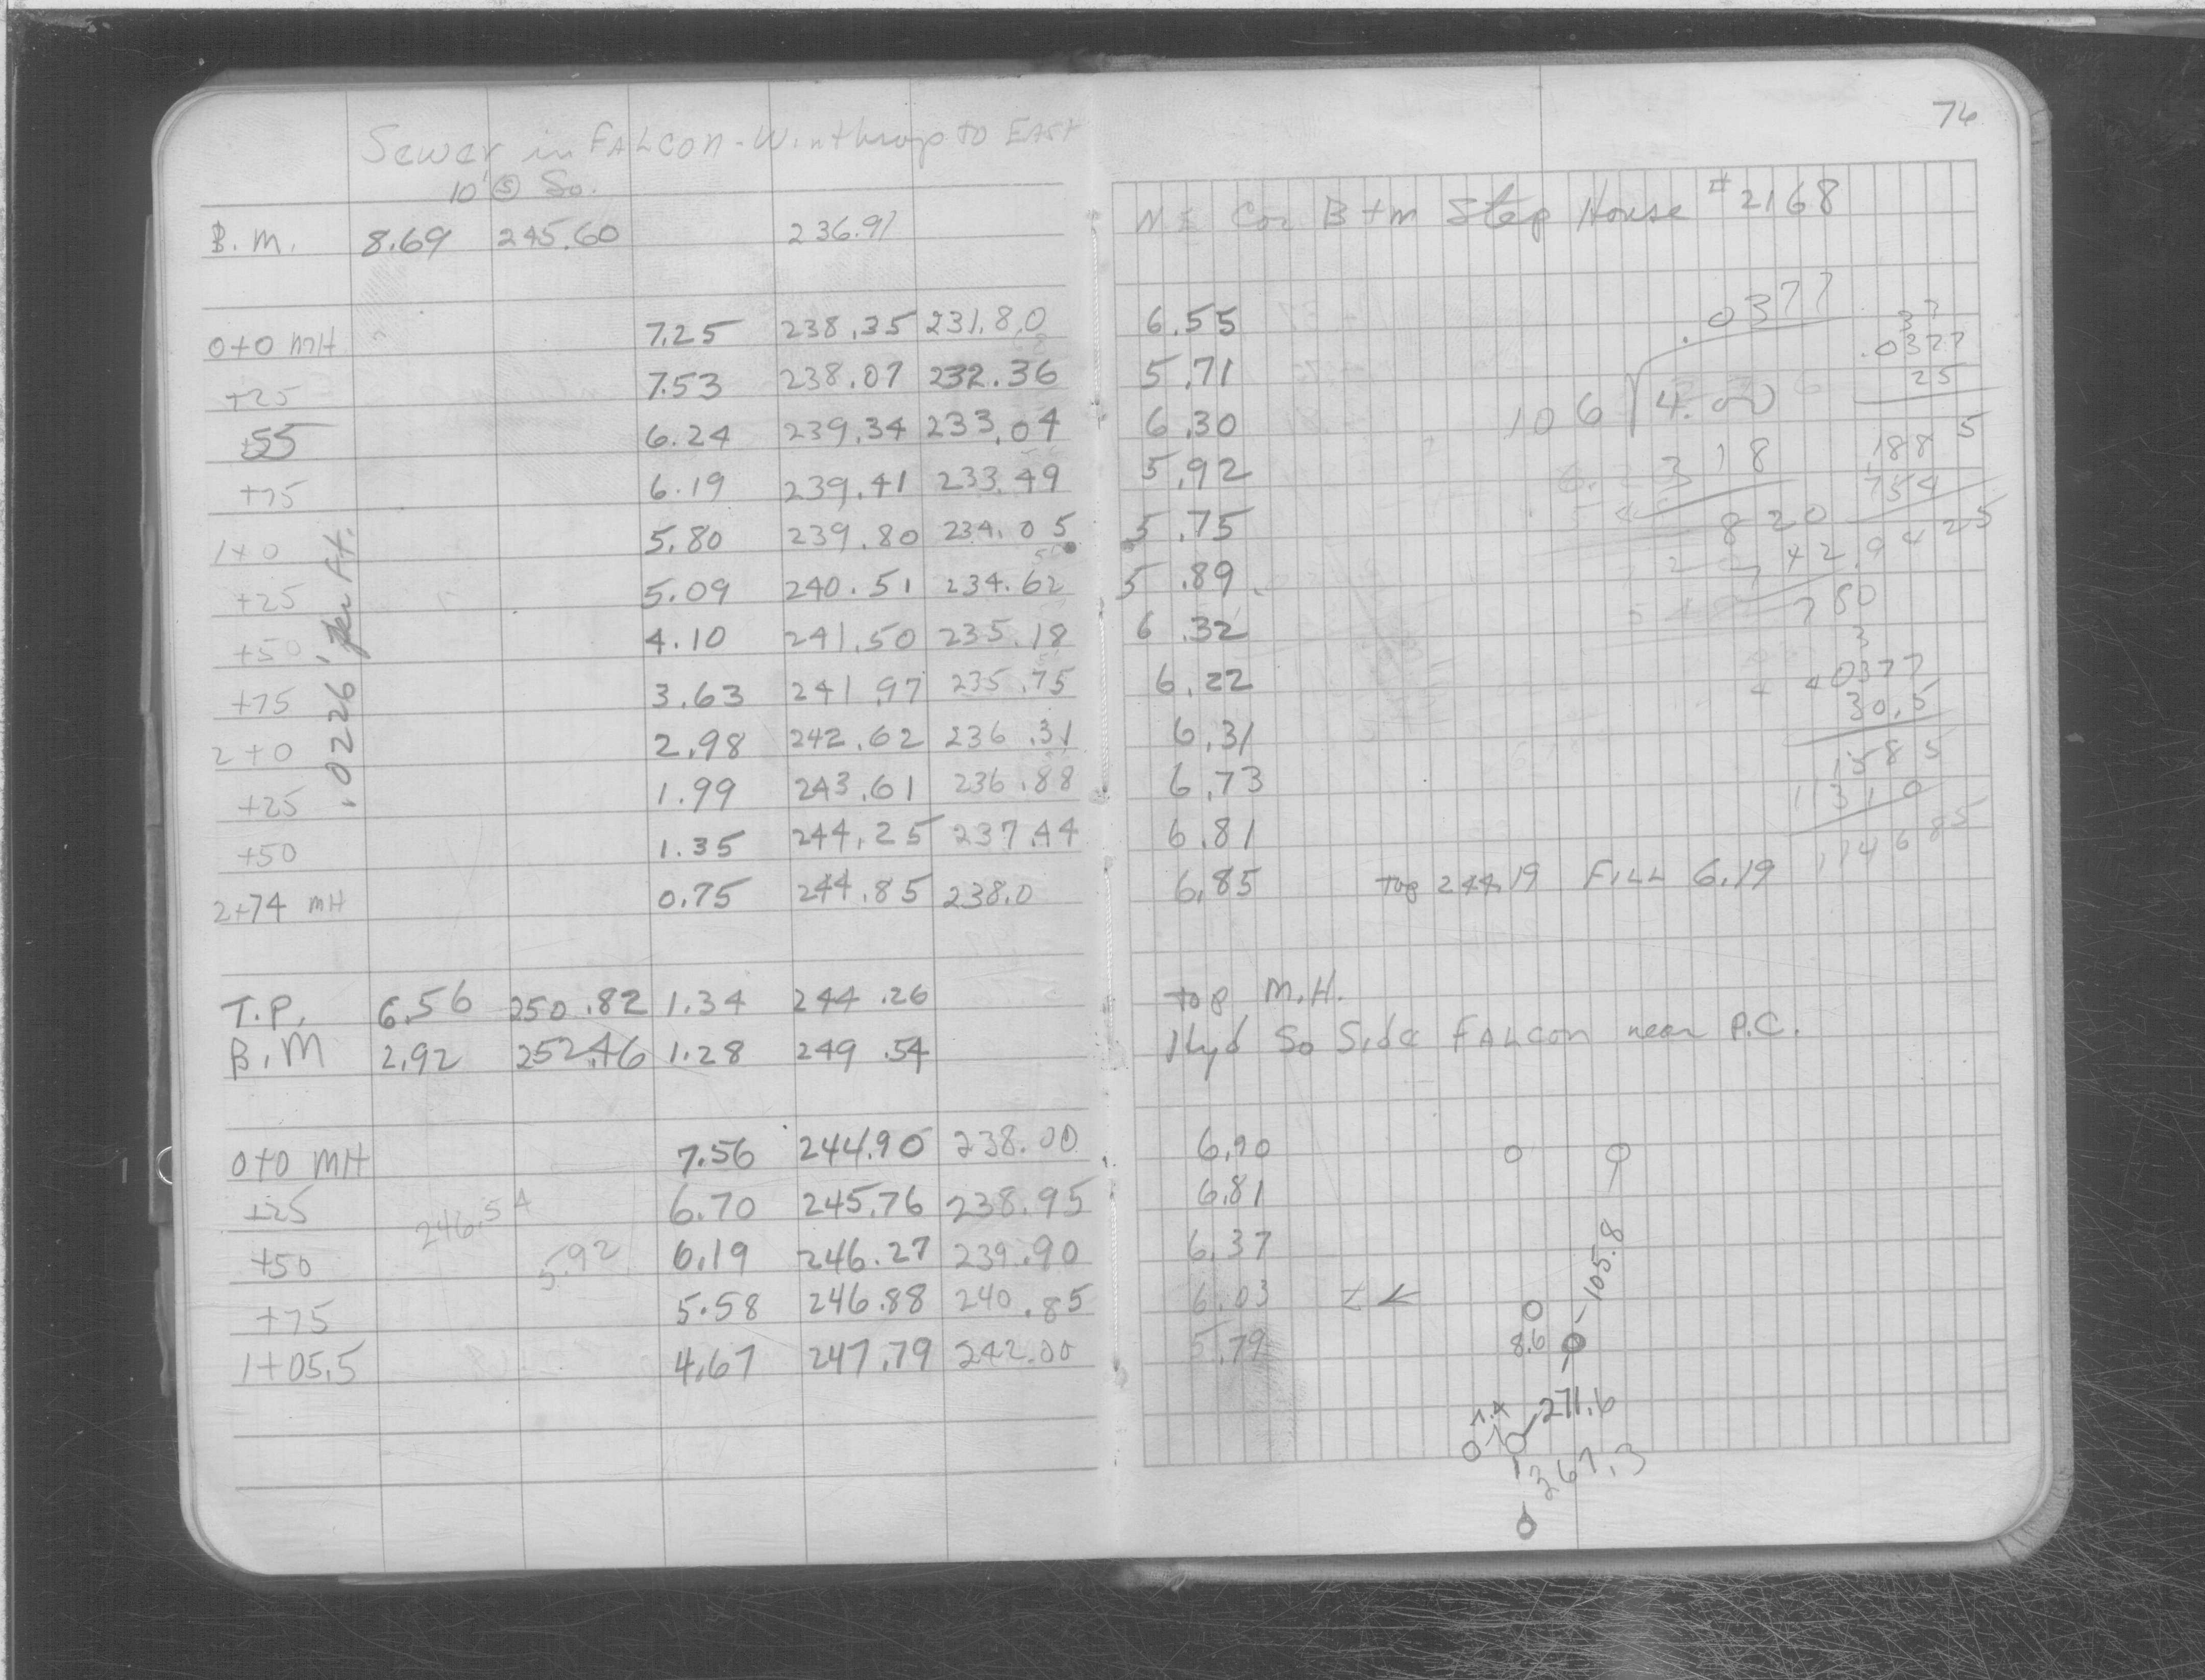 76
Sewer in FALCON - Winthrop to EAST
10' Ⓢ So.
B.M. 8.69 245.60 236.91 N E Cor Btm Step House #2168
0+0 MH 7.25 238.35 231.80 6.55
+25 7.53 238.07 232.36 5.71
+55 6.24 239.34 233.04 6.30
+75 6.19 239.41 233.49 5.92
1+0 5.80 239.80 234.05 5.75
+25 5.09 240.51 234.62 5.89
+50 4.10 241.50 235.18 6.32
+75 3.63 241.97 235.75 6.22
2+0 2.98 242.62 236.31 6.31
+25 1.99 243.61 236.88 6.73
+50 1.35 244.25 237.44 6.81
2+74 MH 0.75 244.85 238.0 6.85 Top 244.19 FILL 6.19
.0226' per ft.
T.P. 6.56 250.82 1.34 244.26 top M.H.
B.M 2.92 252.46 1.28 249.54 Hyd So Side FALCON near P.C.
0+0 MH 7.56 244.90 238.00 6.90
+25 6.70 245.76 238.95 6.81
246.54
+50 6.19 246.27 239.90 6.37
5.92
+75 5.58 246.88 240.85 6.03
1+05.5 4.67 247.79 242.00 5.79
.0377
106 4.00
318
820
742
780
.0377
25
1885
754
.9425
0377
30.5
1885
11310
114685
105.8
8.6
271.6
7.4
267.3